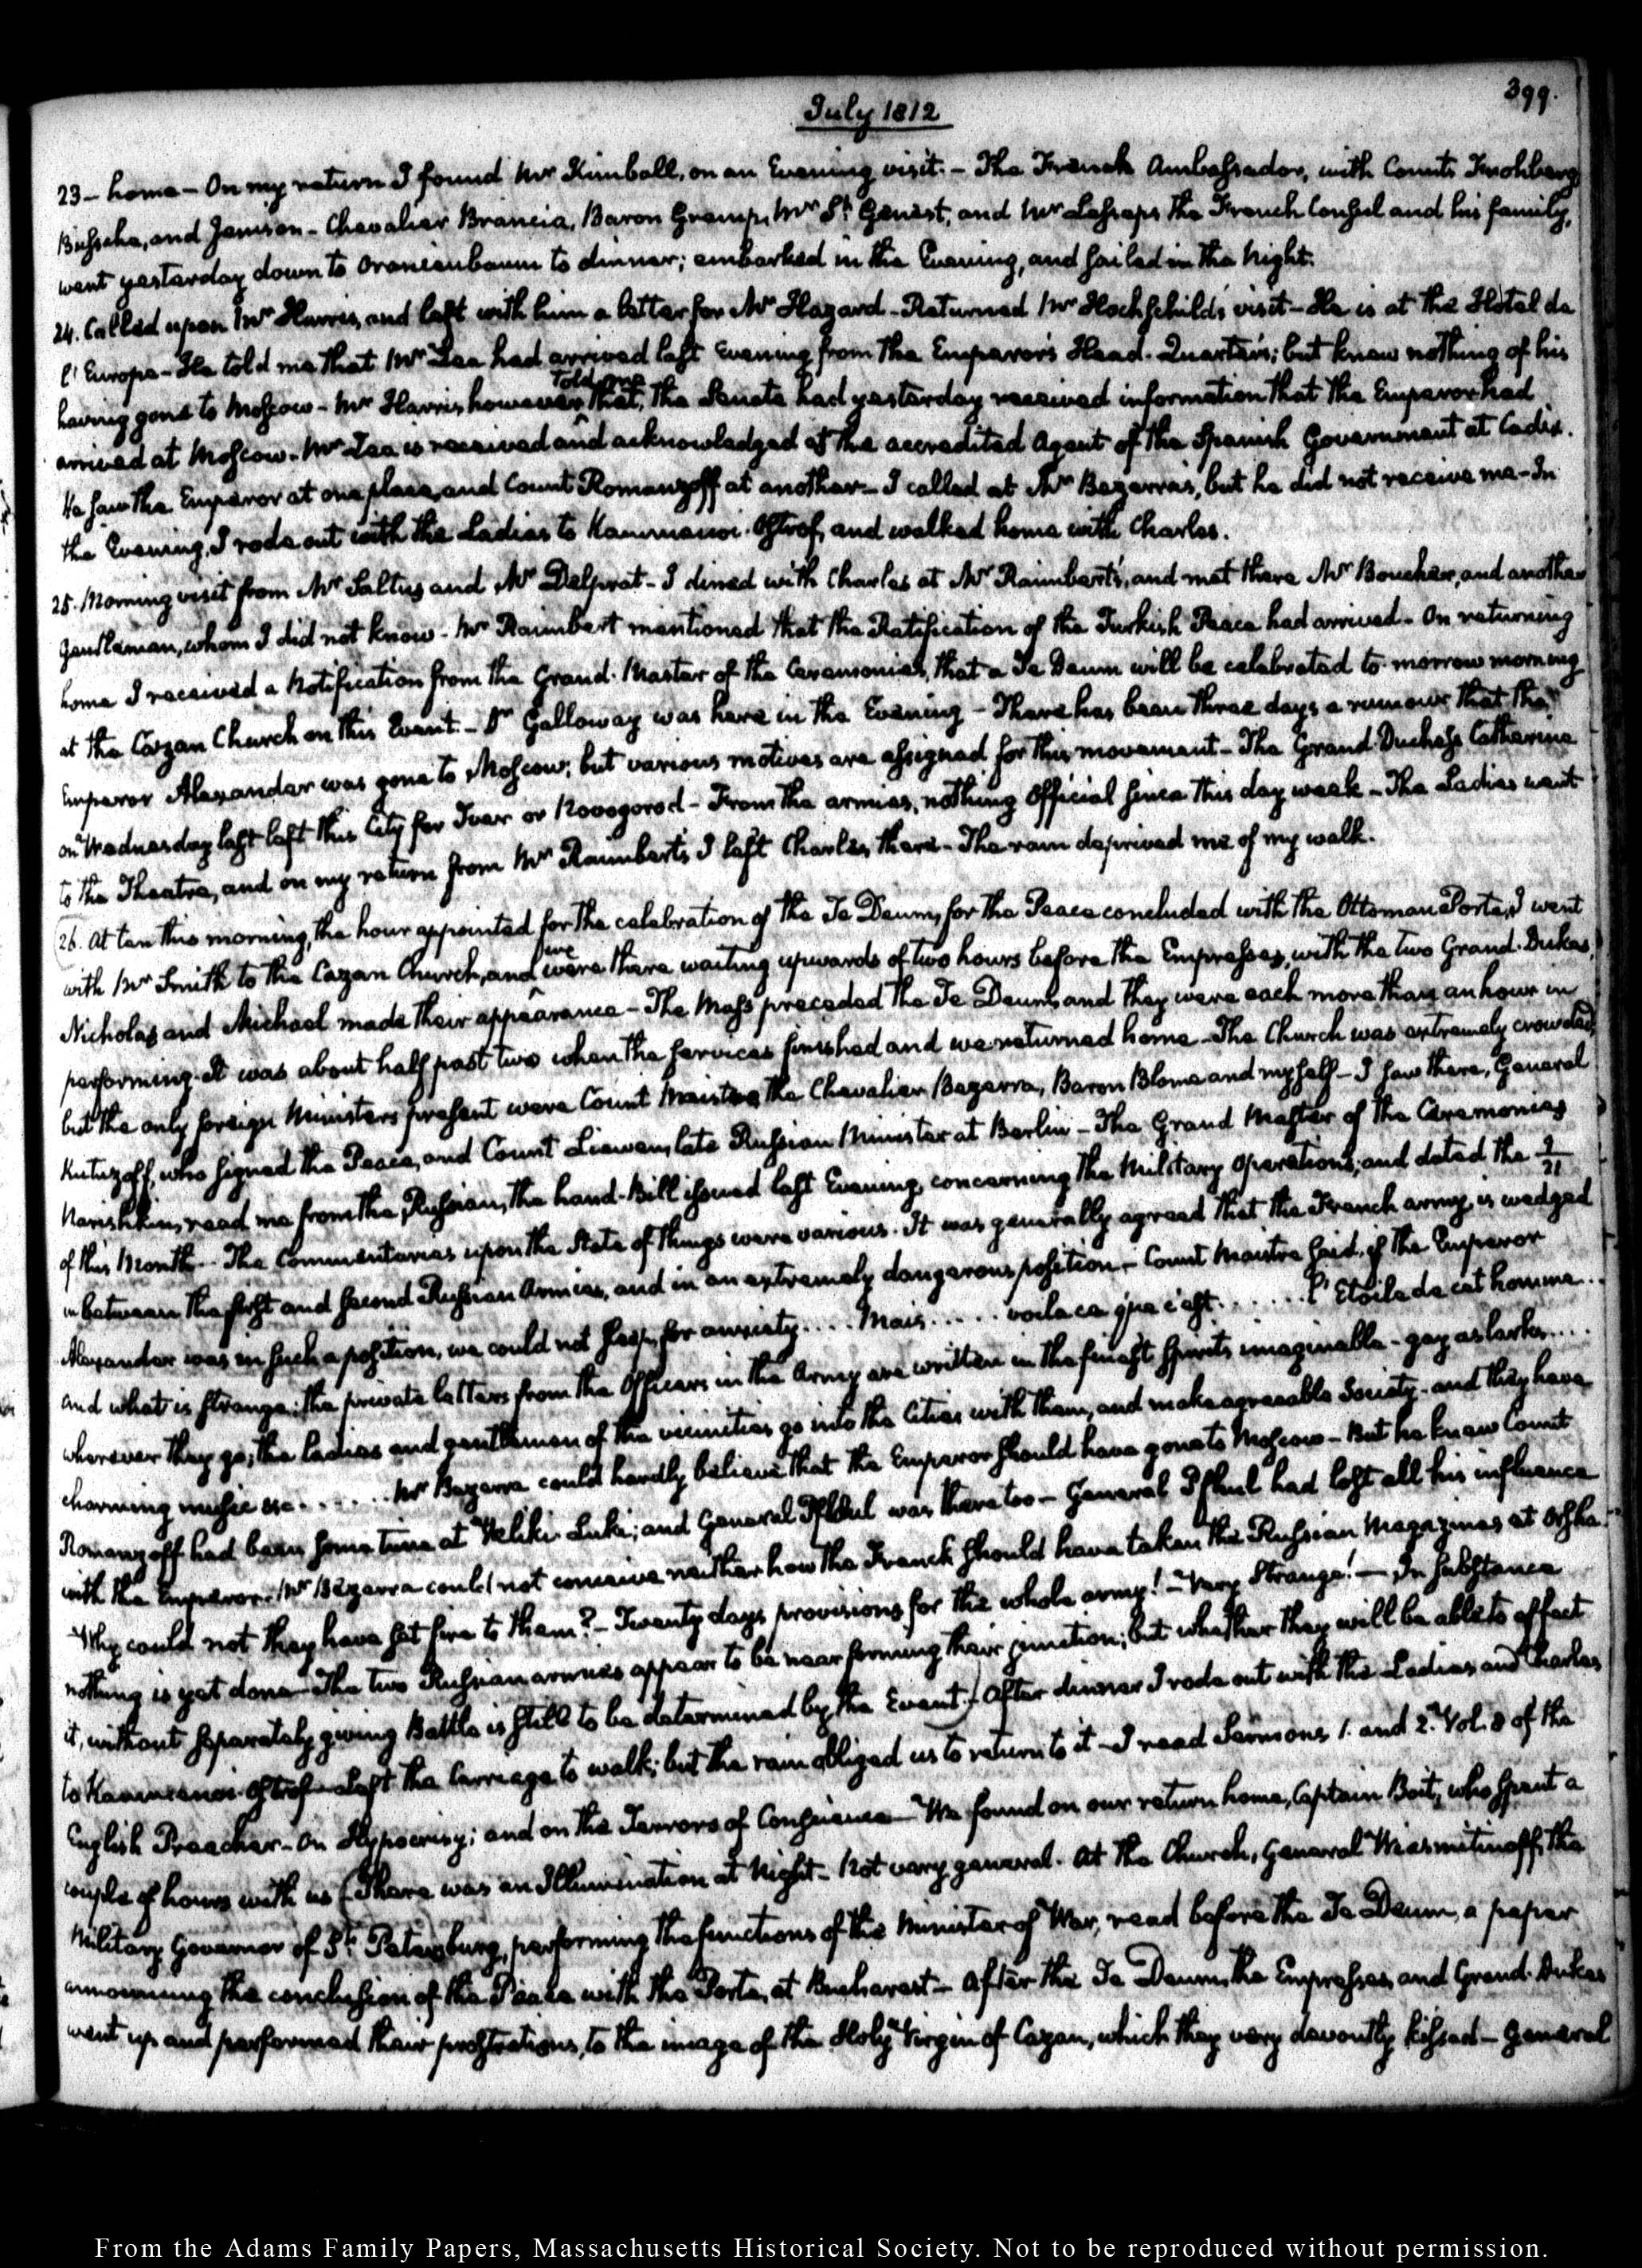 399.
July 1812
23 – home – On my return I found Mr Kimball, on an Evening visit. – The French Ambassador, with Counts Knohberg
Bussche, and Jenison – Chevalier Brancia, Baron Gremp, Mr St Genest, and Mr Lesseps the French Consul and his family,
went yesterday down to Oranienbaum to dinner; embarked in the Evening, and sailed in the Night.
24. Called upon Mr Harris, and left with him a letter for Mr Hazard – Returned Mr Hochschild's visit – He is at the Hotel de
l'Europe – He told me that Mr Zea had arrived last Evening from the Emperor's Head-Quarters; but knew nothing of his
having gone to Moscow – Mr Harris however told me that, the Senate had yesterday received information that the Emperor had
arrived at Moscow. Mr Zea is received and acknowledged as the accredited Agent of the Spanish Government at Cadix.
He saw the Emperor at one place, and Count Romanzoff at another – I called at Mr Bezerra's, but he did not receive me – In
the Evening, I rode out with the Ladies to Kammenoi-Ostrof, and walked home with Charles.
25. Morning visit from Mr Saltus and Mr Delprat – I dined with Charles at Mr Raimbert's, and met there Mr Boucher, and another
Gentleman, whom I did not know – Mr Raimbert mentioned that the Ratification of the Turkish Peace had arrived – On returning
home I received a Notification from the Grand-Master of the Ceremonies, that a Te Deum will be celebrated to-morrow morning
at the Cazan Church on this Event. – Dr Galloway was here in the Evening – There has been three days a rumour that the
Emperor Alexander was gone to Moscow; but various motives are assigned for this movement – The Grand-Duchess Catherine
on Wednesday last left this City for Twer or Novogorod – From the armies, nothing Official since this day week – The Ladies went
to the Theatre, and on my return from Mr Raimbert's I left Charles there – The rain deprived me of my walk.
26. At ten this morning, the hour appointed for the celebration of the Te Deum, for the Peace concluded with the Ottoman Porte, I went
with Mr Smith to the Cazan Church, and we were there waiting upwards of two hours before the Empresses, with the two Grand-Dukes,
Nicholas and Michael made their appearance – The Mass preceded the Te Deum, and they were each more than an hour in
performing. It was about half past two when the services finished and we returned home – The Church was extremely crowded,
but the only foreign Ministers present were Count Maistre, the Chevalier Bezerra, Baron Blome and myself – I saw there, General
Kutuzoff, who signed the Peace, and Count Liewen, late Russian Minister at Berlin – The Grand Master of the Ceremonies
Narishkin, read me from the Russian, the hand-Bill issued last Evening, concerning the Military Operations, and dated the 9/21
of this Month – The Commentaries upon the State of things were various. It was generally agreed that the French army, is wedged
in between the first and second Russian Armies, and in an extremely dangerous position – Count Maistre said, if the Emperor
Alexander was in such a position, we could not sleep, for anxiety.... Mais..... voila ce que c'est...... l'Etoile de cet homme...
and what is strange; the private letters from the Officers in the Army are written in the finest spirits imaginable – gay as larks....
wherever they go; the ladies and gentlemen of the vicinities go into the Cities with them, and make agreeable Society – and they have
charming music &c...... Mr Bezerra could hardly believe that the Emperor should have gone to Moscow – But he knew Count
Romanzoff had been some time at Veliki-Luki; and General Pfhul was there too – General Pfhul had lost all his influence
with the Emperor. Mr Bezerra could not conceive neither how the French should have taken the Russian Magazines at Orsha.
Why could not they have set fire to them? – Twenty days provisions for the whole army! – Very Strange! – In Substance
nothing is yet done – The two Russian armies appear to be near forming their junction; but whether they will be able to effect
it, without separately giving Battle is still to be determined by the Event.) After dinner I rode out with the Ladies and Charles
to Kammenoi-Ostrof – Left the Carriage to walk; but the rain obliged us to return to it – I read Sermons 1. and 2. Vol. 8 of the
English Preacher – On Hypocrisy; and on the Terrors of Conscience – We found on our return home, Captain Bait, who spent a
couple of hours with us (There was an Illumination at Night – Not very general. At the Church, General Wiasmitinoff, the
Military Governor of St Petersburg, performing the functions of the Minister of War, read before the Te Deum, a paper
announcing the conclusion of the Peace with the Porte, at Bucharest – After the Te Deum, the Empresses, and Grand-Dukes
went up and performed their prostrations, to the image of the Holy Virgin of Cazan, which they very devoutly kissed – General
From the Adams Family Papers, Massachusetts Historical Society. Not to be reproduced without permission.